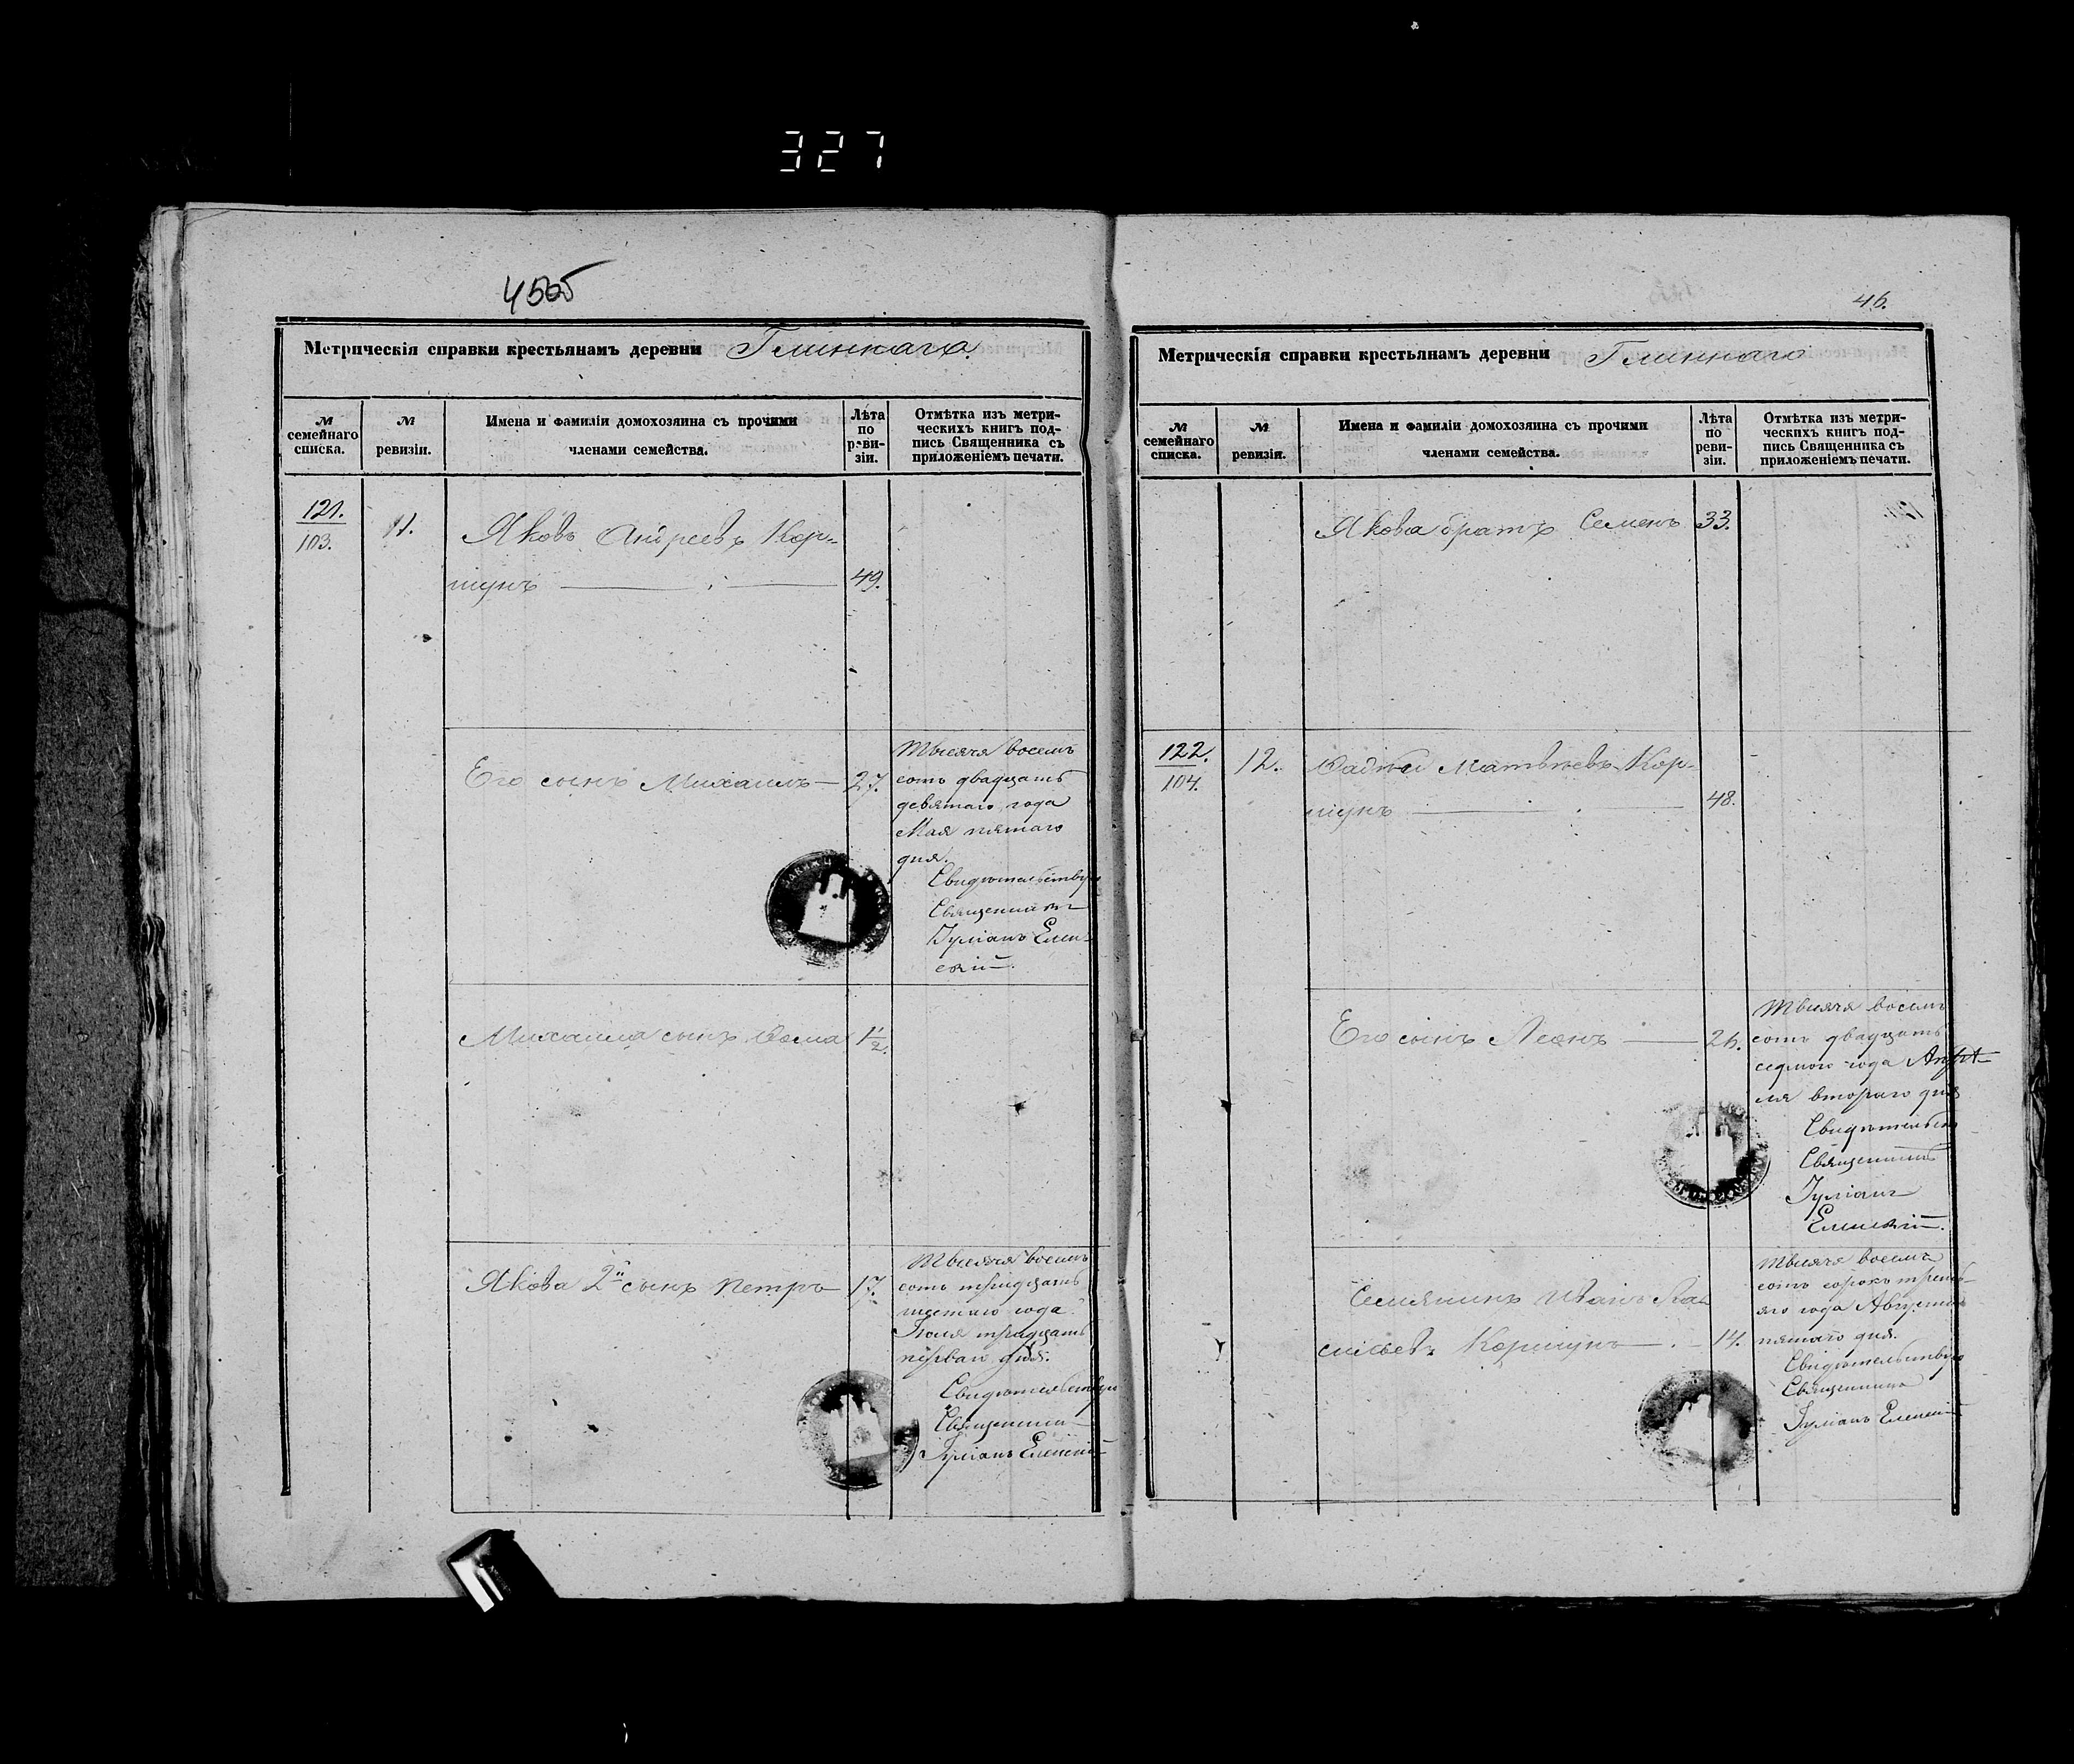 327
45об
Метрическія справки крестьянамъ деревни Глинкаго.
№ семейнаго списка.
№ ревизіи.
Имена и фамиліи домохозяина съ прочими
членами семейства.
Лѣта по реви-зіи.
Отмѣтка изъ метри-
ческихъ книгъ под-
пись Священника съ
приложеніемъ печати.
121.
103.
11.
Яковъ Андреевъ Кор-
шунъ
49.
Его сынъ Михаилъ
27.
Тысяча восемь
сотъ двадцать
девятаго года
Мая пятаго
дня.
Свидѣтельствую
Священникъ
Іуліанъ Елен-
скій
Михаила сынъ Фома
1 1/2.
Якова 2й сынъ Петръ
17.
Тысяча восемь
сотъ тридцать
шестаго года
Іюля тридцать
перваго дня.
Свидѣтельствую
Священникъ
Іуліанъ Еленскій
46.
Метрическія справки крестьянамъ деревни Глинкаго
№ семейнаго списка.
№ ревизіи.
Имена и фамиліи домохозяина съ прочими
членами семейства.
Лѣта по реви-зіи.
Отмѣтка изъ метри-
ческихъ книгъ под-
пись Священника съ
приложеніемъ печати.
Якова братъ Семенъ
33.
122.
104.
12.
Матвѣевъ Кор-
шунъ
48.
Его сынъ Леонъ
26.
Тысяча восемь
сотъ двадцать
седмого года Апрѣ-
ля втораго дня
Свидѣтельст
Священникъ
Іуліанъ
Еленскій.
Семянинъ Иванъ
Коршунъ
14.
Тысяча восемь
сотъ сорокъ треть-
яго года Августа
пятаго дня.
Свидѣтельствую
Священникъ
Іуліанъ Еленскій